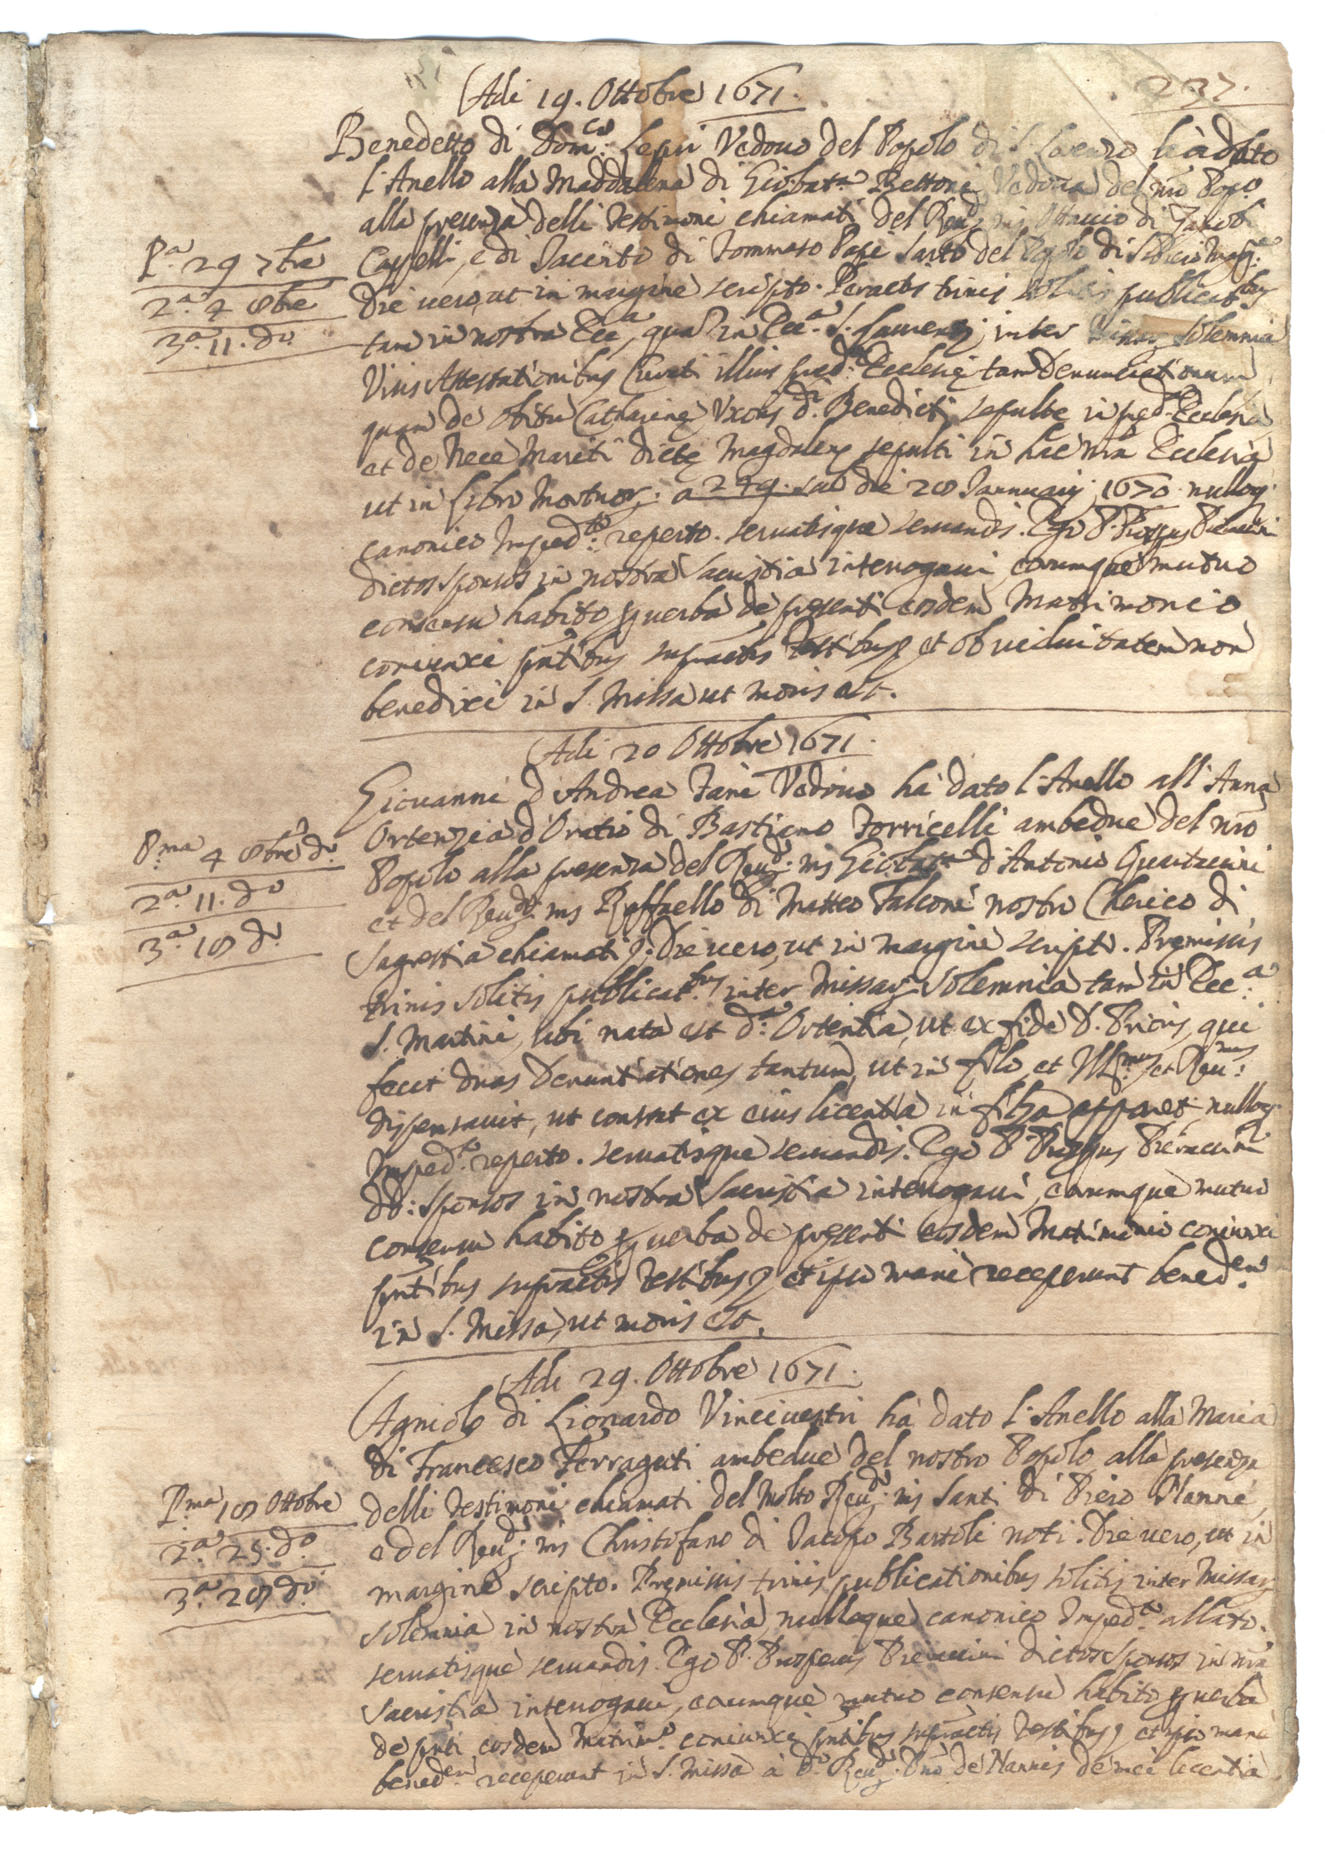 Adi 19. Ottobre 1671.
237.
Benedetto di Dom.co Lepri Vedovo del Popolo di S. Lorenzo hà dato
l'Anello alla Maddalena di Giobat.ta Bettoni Vedova del nro Popo
alla presenza delli Testimoni chiamati del Reud. ms di Jacob
Cappelli, e di Jacinto di Tommaso Pape Sarto del Pplo di
P.a 29 7bre
2.a 4 8bre
3.a 11. do
Die uero, ut in margine scripto. Peractis trinis solitis publicat.bus
tam in nostra Ecc.a, qua in Ecc.a S. Laurentij inter solemnia
Visis Attestationibus Curati illius pred. Ecclesię tam Denunciationum
quam de obitu Catharinę Vxoris d.i Benedicti sepulte in pred. Ecclesia
et de Nece Mariti dictę Magdalenę sepulti in hac nra Ecclesia
ut in libro Mortuor. a 249. sub die 20 Januarij 1670. nulloq.
canonico Imped.to reperto. seruatisque seruandis. Ego P. Piezucini
dictos sponsos in nostra Sacristia interrogaui, eorumque mutuo
consensu habito p uerba de presenti eosdem Matrimonio
coniunxi pntibus supractis Testibus, et ob uiduitatem non
benedixi in S. Missa ut moris est.
Adi 20 Ottobre 1671.
Giouanni d'Andrea Fani Vedouo hà dato l'Anello all'Anna
Ortenzia d'Oratio di Bastiano Torricelli ambedue del nro
P.ma 4 8bre do
2.a 11. do
3.a 18 do
Popolo alla presenza del Reud. ms Giobat.ta d'Antonio
et del Reud. ms Raffaello di Matteo Falconi nostro Cherico di
Sagrestia chiamati p. Die uero, ut in margine scripto. Premissis
trinis solitis publicat.bus inter Missarum solemnia tam in Ecc.a
S. Martini, ubi nata est d.a Ortentia, ut ex fide D. Prioris, qui
fecit duas denuntiationes tantum, ut in filo, et Ill.mus et Reu.mus
dispensauit, ut constat ex eius licentia in filza apparet, nulloq.
Imped.to reperto. seruatisque seruandis. Ego P.
do: sponsos in nostra Sacristia interrogaui, eorumque mutuo
consensu habito p uerba de presenti eosdem Matrimonio coniunxi
pntibus supractis Testibus, et ipso mane receperunt bened.em
in S. Missa, ut moris est.
Adi 29. Ottobre 1671.
Agniolo di Lionardo Vinciuestri hà dato l'Anello alla Maria
di Francesco Ferraguti ambedue del nostro Popolo alla presenza
P.ma 18 Ottobre
2.a 25. do
3.a 28 do
delli Testimoni chiamati del Molto Reud. ms Santi di Piero Nanni,
e del Reud. ms Christofano di Jacopo Bartoli noti. Die uero, ut in
margine scripto. Premissis trinis publicationibus solitis inter Missarum
solemnia in nostra Ecclesia, nulloque canonico Imped.to allato.
seruatisque seruandis. Ego P. Prosperus dictos sponsos in nra
Sacristia interrogaui, eorumque mutuo consensu habito p uerba
de pnti eosdem Matrim.o coniunxi pntibus supractis Testibus, et ipso mane
bened.em receperunt in S. Missa à do Reud. Dno de Nannis de mei licentia